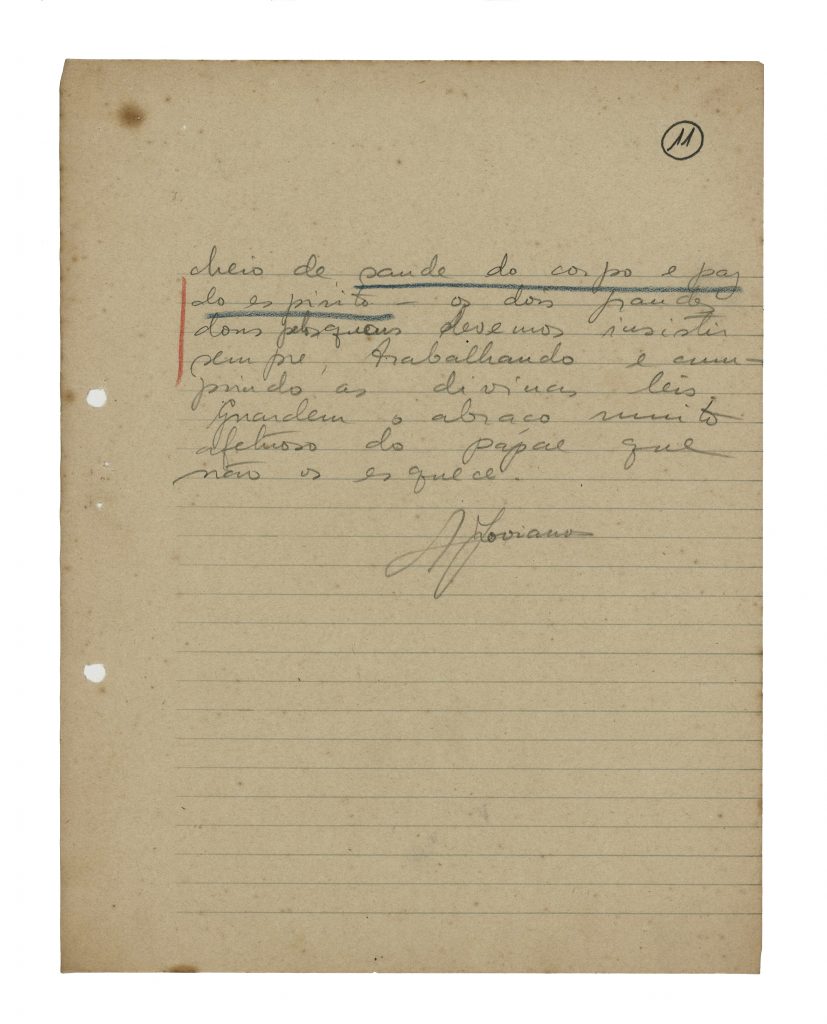 11
cheio de saude do corpo e paz
do espirito - os dois grandes
dons pelos quais devemos insistir
sempre, trabalhando e cum-
prindo as divinas leis.
Guardem o abraço muito
afetuoso do papae que
não os esquece.
A Joviano